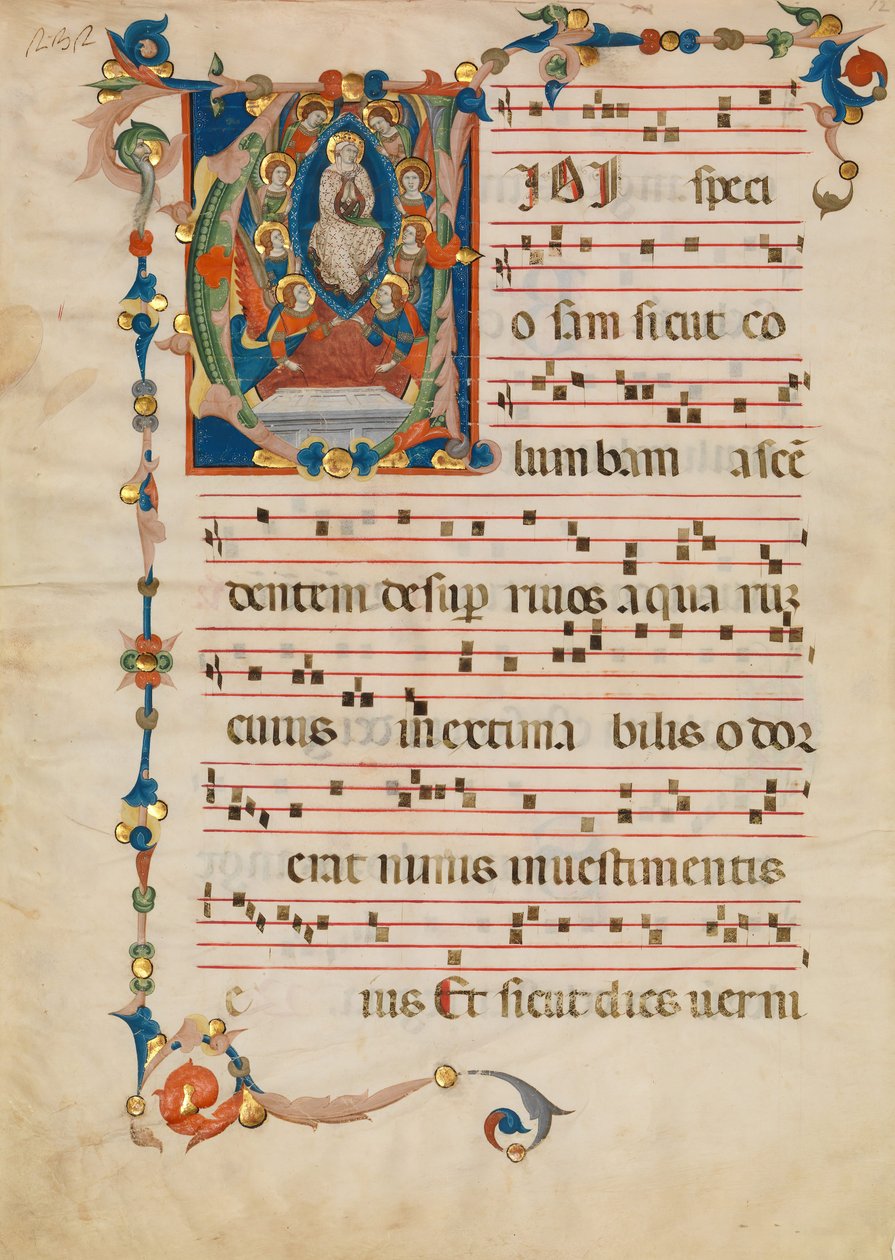 12
VIDI speci
o sam sicut co
lum bam ascē
dentem desup̱ riuos aqua ruȝ
cuius in extima bilis odor
erat nimis inuestimentis
e ius Et sicut dies uerni